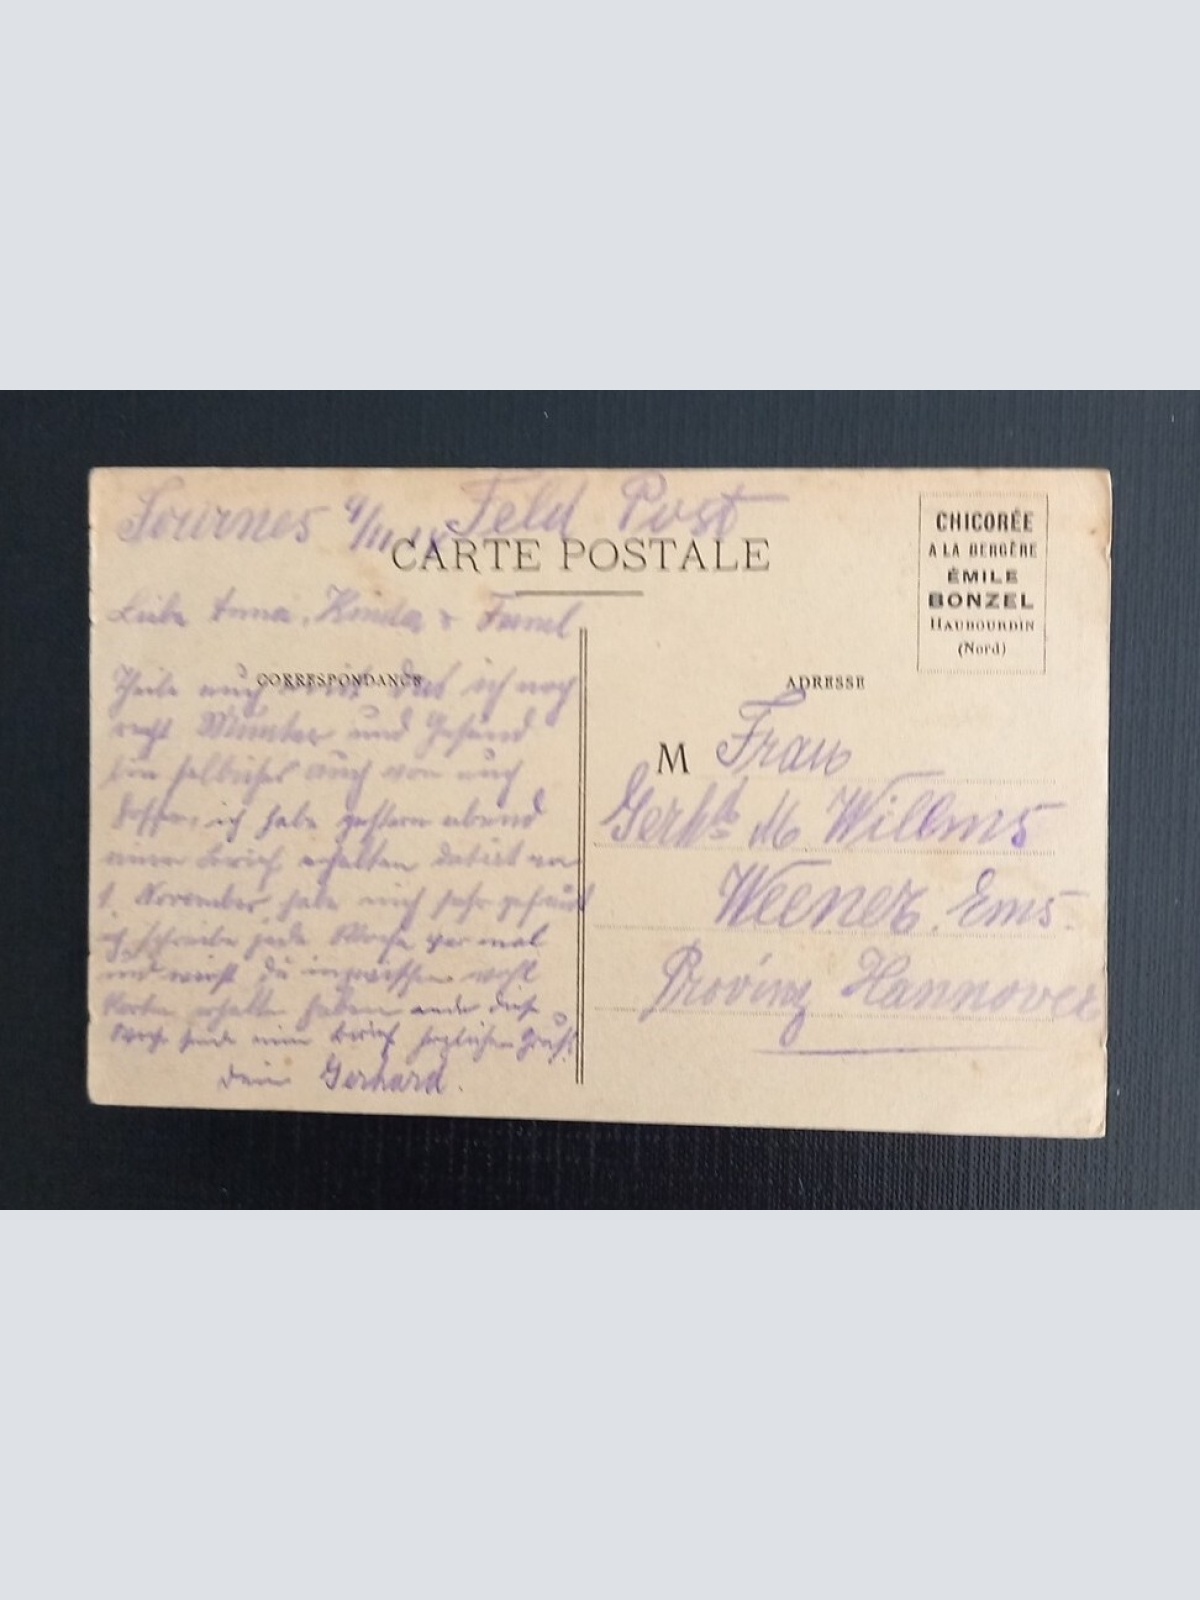 Fournes 9/11 Feld Post
CARTE POSTALE
CHICORÉE
A LA BERGÈRE
ÉMILE
BONZEL
HAUBOURDIN
(Nord)
Liebe Anna,
CORRESPONDANCE
Theile euch mit das ich noch
recht Munter und Gesund
bin selbiges auch von euch
hoffe, ich habe gestern abend
einen Brief erhalten datirt von
1. November, habe mich sehr gefreut
ich schreibe jede Woche paar mal
und wirst du inzwischen wohl
Karten erhalten haben ende diese
Woche sende einen Brief herzlichen Gruß
dein Gerhard.
ADRESSE
M Frau
Gerhd M Willms
Weener. Ems.
Provinz Hannover